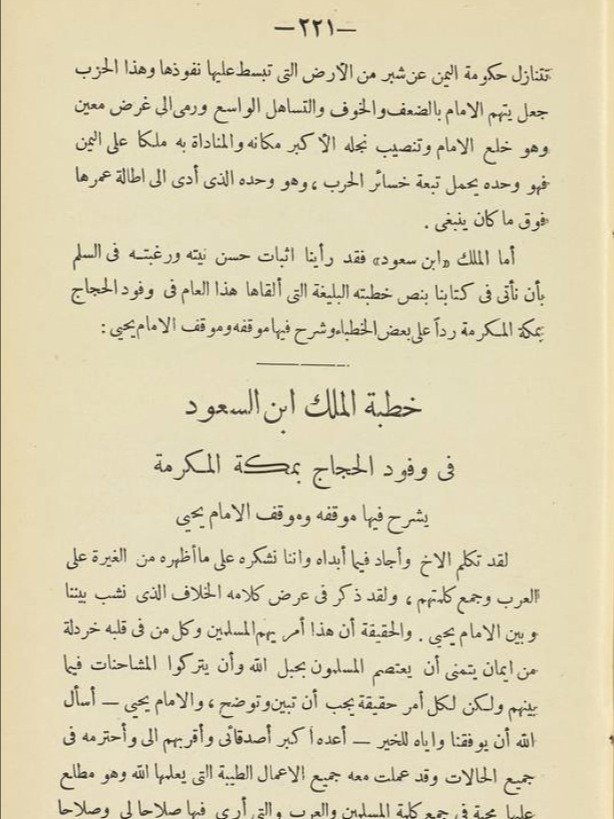 —٢٢١—
تتنازل حكومة اليمن عن شبر من الأرض التى تبسط عليها نفوذها وهذا الحزب
جعل يتهم الامام بالضعف والخوف والتساهل الواسع ورمى الى غرض معين
وهو خلع الامام وتنصيب نجله الأكبر مكانه والمناداة به ملكا على اليمن
فهو وحده يحمل تبعة خسائر الحرب ، وهو وحده الذى أدى الى اطالة عمرها
فوق ما كان ينبغى .
أما الملك «ابن سعود» فقد رأينا اثبات حسن نيته ورغبته فى السلم
بأن نأتى فى كتابنا بنص خطبته البليغة التى ألقاها هذا العام فى وفود الحجاج
بمكة المكرمة رداً على بعض الخطباء وشرح فيها موقفه وموقف الامام يحيى :
خطبة الملك ابن السعود
فى وفود الحجاج بمكة المكرمة
يشرح فيها موقفه وموقف الامام يحيى
لقد تكلم الاخ وأجاد فيما أبداه واننا نشكره على ما أظهره من الغيرة على
العرب وجمع كلمتهم ، ولقد ذكر فى عرض كلامه الخلاف الذى نشب بيننا
وبين الامام يحيى . والحقيقة أن هذا أمر يهم المسلمين وكل من فى قلبه خردلة
من ايمان يتمنى أن يعتصم المسلمون بحبل الله وأن يتركوا المشاحنات فيما
بينهم ولكن لكل أمر حقيقة يجب أن تبين وتوضح ، والامام يحيى — أسأل
الله أن يوفقنا واياه للخير — أعده أكبر أصدقائى وأقربهم الى وأحترمه فى
جميع الحالات وقد عملت معه جميع الاعمال الطيبة التى يعلمها الله وهو مطلع
عليها محبة فى جمع كلمة المسلمين والعرب والتى أرى فيها صلاحا لى وصلاحا